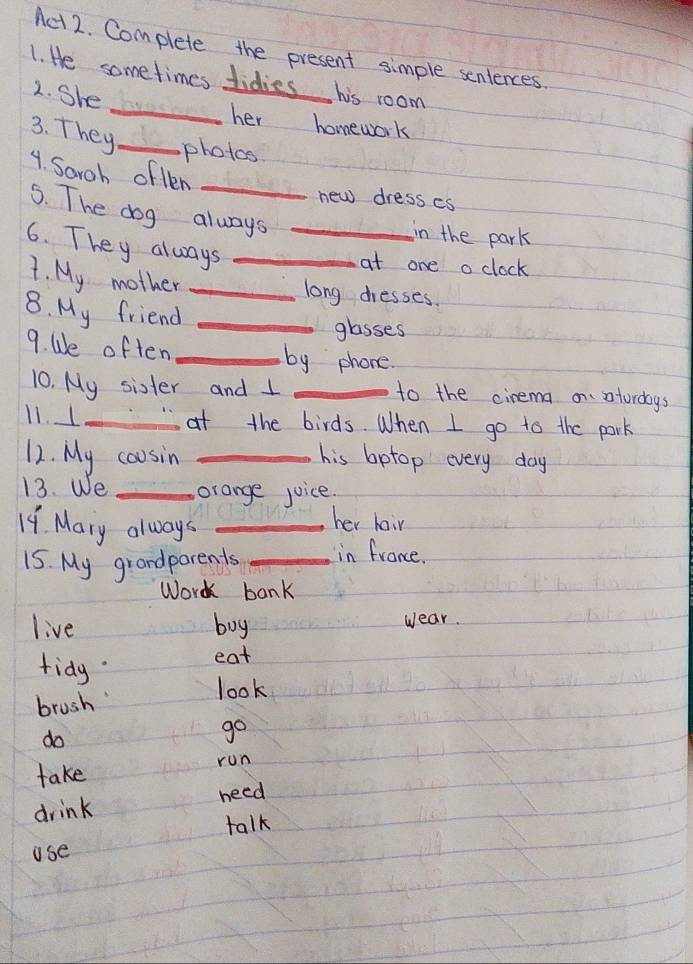 Act 2. Complete the present simple sentences.
1. He sometimes tidies his room
2. She ______ her homework
3. They ______ photos.
4. Sarah often ______ new dresses
5. The dog always ______ in the park
6. They always ______ at one o clock
7. My mother ______ long dresses.
8. My friend ______ glasses
9. We often ______ by phone.
10. My sister and I ______ to the cinema on saturdays
11. I ______ at the birds. When I go to the park
12. My cousin ______ his laptop every day
13. We ______ orange juice.
14. Mary always ______ her hair
15. My grandparents ______ in france.
Word bank
live buy wear.
tidy eat
brush look
do go
take run
drink need
use talk